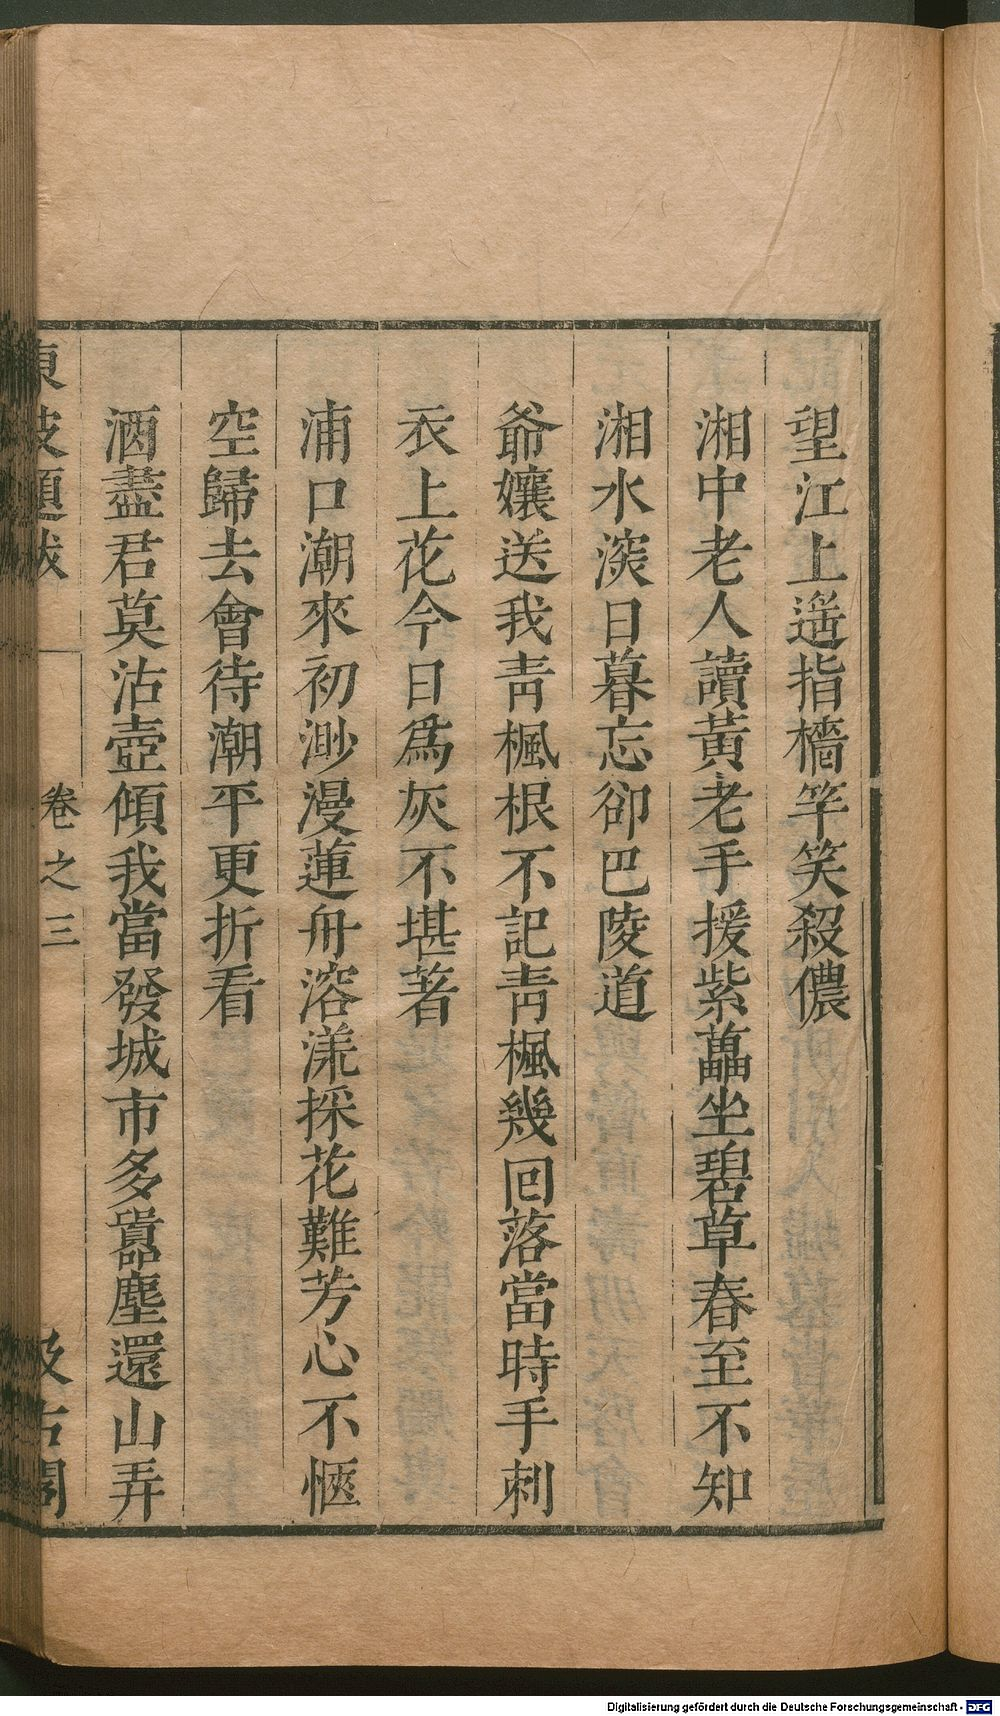 望江上遥指檣竿笑殺儂
湘中老人讀黃老手援紫藟坐碧草春至不知
湘水深日暮忘卻巴陵道
爺孃送我青楓根不記青楓幾回落當時手刺
衣上花今日爲灰不堪著
浦口潮來初渺漫蓮舟溶漾採花難芳心不愜
空歸去會待潮平更折看
酒盡君莫沽壺傾我當發城市多囂塵還山弄
東坡題跋
卷之三
汲古閣
Digitalisierung gefördert durch die Deutsche Forschungsgemeinschaft - DFG